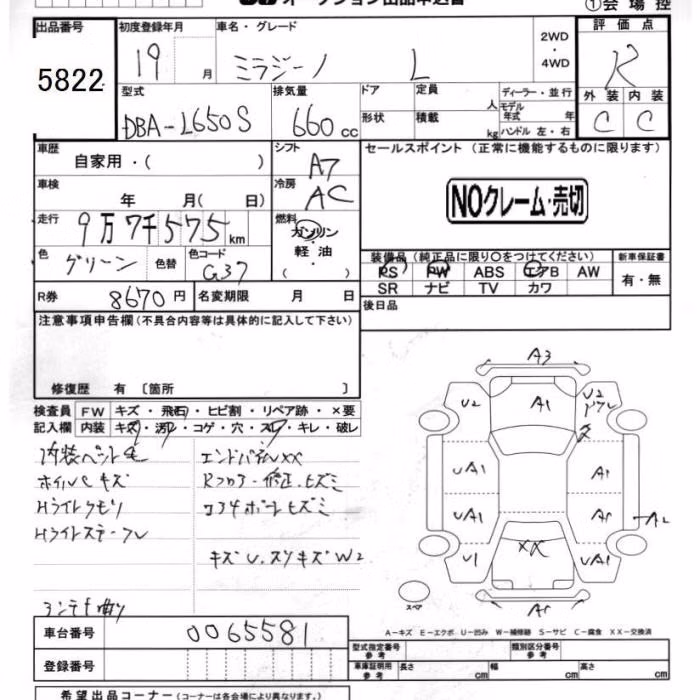 オークション出品申込書
①会場控
出品番号 初度登録年月 車名・グレード 2WD・4WD 評価点
5822 19 月 ミラジーノ L R
型式 排気量 ドア 定員 人 ディーラー・並行 外装 内装
DBA-L650S 660cc 形状 積載 kg モデル年式 年 ハンドル 左・右 C C
車歴 自家用・( ) シフト A7 セールスポイント (正常に機能するものに限ります)
車検 年 月( 日) 冷房 AC NOクレーム・売切
走行 9万7千575km 燃料 ガソリン・軽油 ( )
装備品 (純正品に限り〇をつけてください) 新車保証書
色 グリーン 色替 色コード G37 PS PW ABS エアB AW 有・無
SR ナビ TV カワ
R券 8670円 名変期限 月 日 後日品
注意事項申告欄 (不具合内容等は具体的に記入して下さい)
修復歴 有 〔箇所 〕
検査員 FW キズ・飛石・ヒビ割・リペア跡・×要
記入欄 内装 キズ・汚レ・コゲ・穴・スレ・キレ・破レ
内装ペット毛 エンドパネルXX
ホイルCキズ Rフロアー修正、ヒズミ
Hライトクモリ コアサポートヒズミ
Hライトステークレ
キズU、スリキズW2
アンテナ曲り
A3
U2 A1 U2
UA1 A1
UA1 A1 A2
U1 XX UA1
A1
スペア
A-キズ E-エクボ U-凹み W-補修跡 S-サビ C-腐食 XX-交換済
車台番号 0065581
型式指定番号 参考 類別区分番号 参考
登録番号 車庫証明用 参考 長さ cm 幅 cm 高さ cm
希望出品コーナー (コーナーは各会場により異なります)